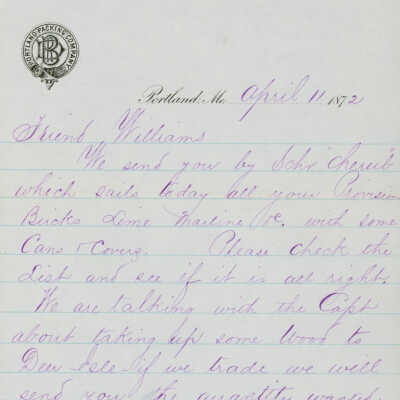 PORTLAND PACKING COMPANY
Portland, Me. April 11 1872
Friend Williams
We send you by Schr "Cherub"
which sails today all your Provision
Bricks Lime Marline &c. with some
Cans & Covers. Please check the
List and see if it is all right.
We are talking with the Capt
about taking up some Wood to
Deer-Isle-if we trade we will
send you the quantity wanted